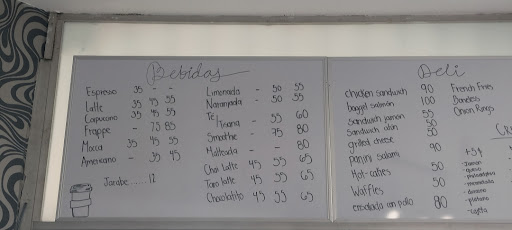 Bebidas
Espresso 35 - -
Latte 35 45 55
Capuccino 35 45 55
Frappe - 75 85
Mocca 35 45 55
Americano - 35 45
Jarabe..... 12
Limonada - 50 55
Naranjada - 50 55
Te/
Tisana - 55 60
Smoothie - 75 80
Malteada - 80
Chai latte 45 55 65
Taro latte 45 55 65
Chocolatito 45 55 65
Deli
chicken sandwich 90
baggel salmon 100
Sandwich jamon 55
Sandwich atun 50
grilled cheese 50
panini salami 90
Hot-cakes 50
Waffles 50
ensalada con pollo 80
French Fries
Boneless
Onion Rings
+5$
- Jamon
- queso
- philadelphia
- mermelada
- platano
- cajeta